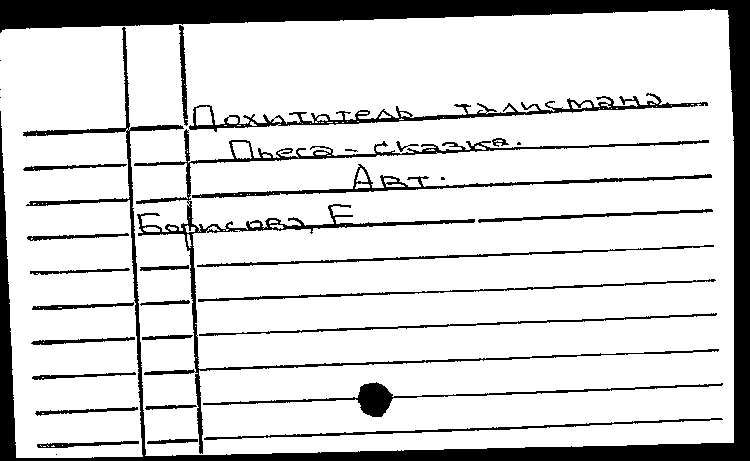 Похититель талисмана.
Пьеса - сказка.
Авт.
Борисова, Е